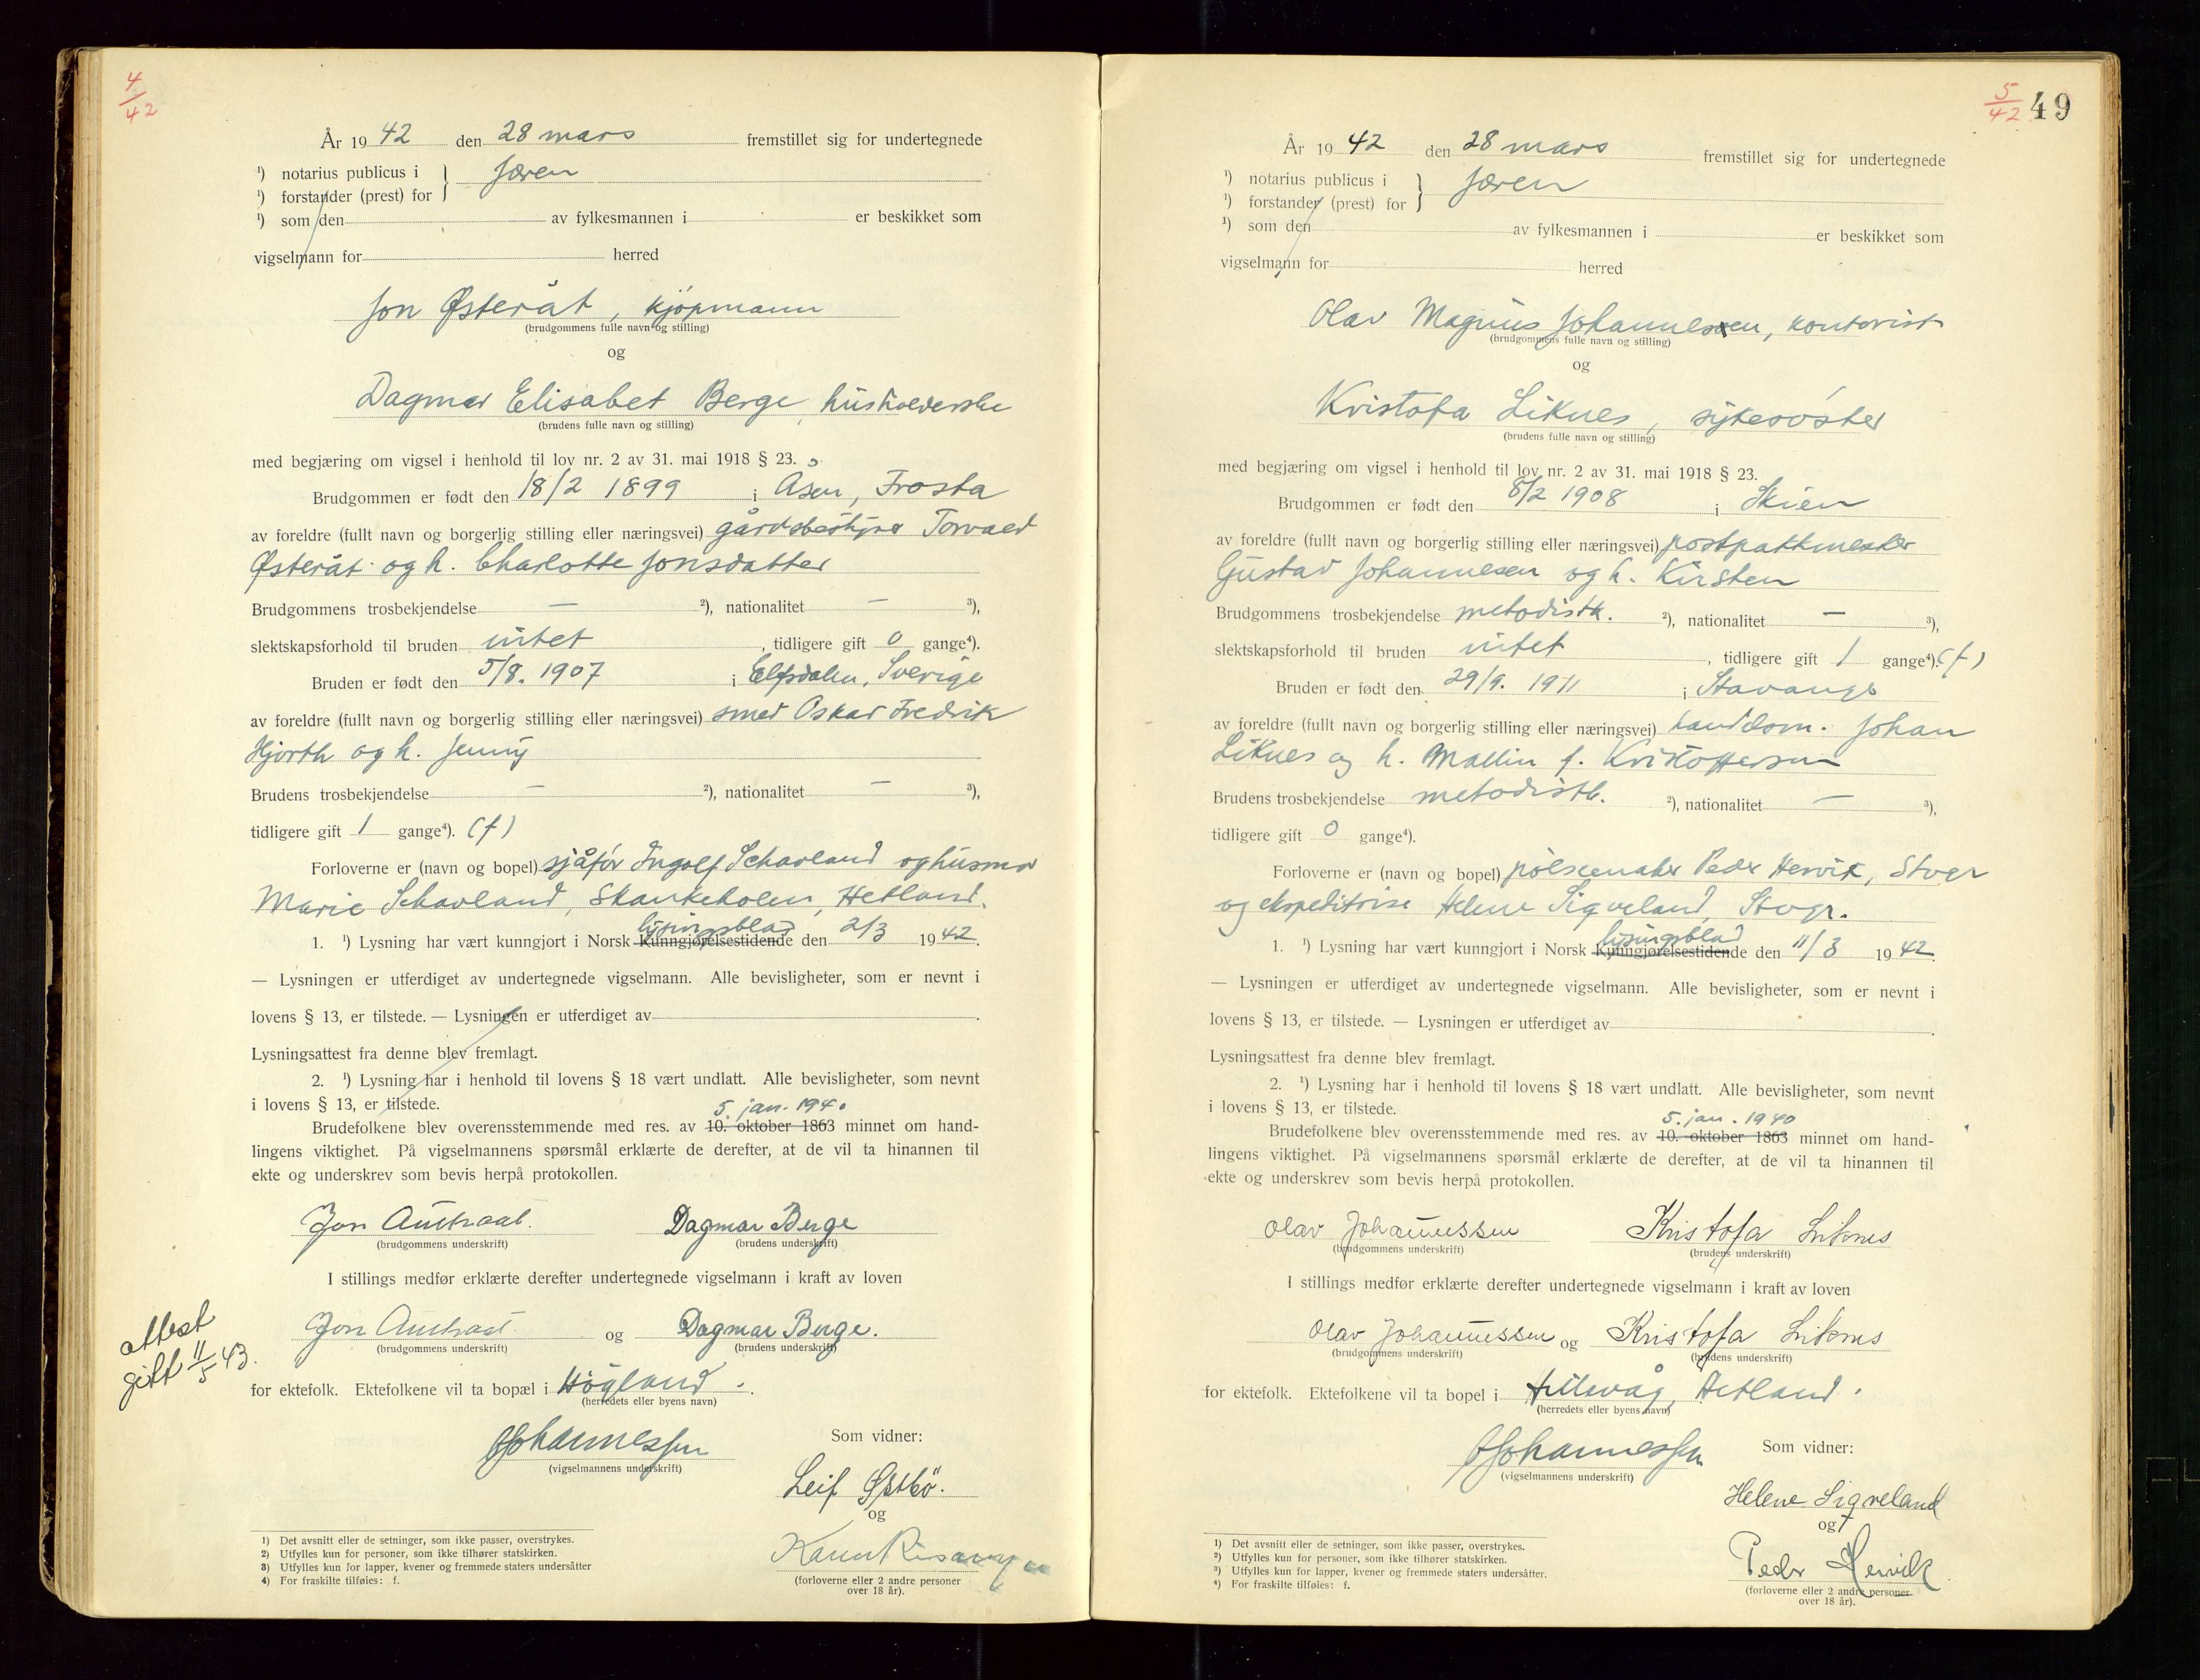 4/42
År 1942 den 28 mars fremstillet sig for undertegnede
¹) notarius publicus i } Jæren
¹) forstander (prest) for
¹) som den av fylkesmannen i er beskikket som
vigselmann for herred
Jon Østeråt, kjøpmann
(brudgommens fulle navn og stilling)
og
Dagmar Elisabet Berge, husholderske
(brudens fulle navn og stilling)
med begjæring om vigsel i henhold til lov nr. 2 av 31. mai 1918 § 23.
Brudgommen er født den 18/2 1899 i Åsen, Frosta
av foreldre (fullt navn og borgerlig stilling eller næringsvei) gårdsbestyrer Torvald
Østeråt og h. Charlotte Jonsdatter
Brudgommens trosbekjendelse — ²), nationalitet — ³),
slektskapsforhold til bruden intet, tidligere gift 0 gange⁴).
Bruden er født den 5/8. 1907 i Elfsdalen, Sverige
av foreldre (fullt navn og borgerlig stilling eller næringsvei) smed Oskar Fredrik
Hjorth og h. Jenny
Brudens trosbekjendelse — ²), nationalitet — ³),
tidligere gift 1 gange⁴). (f)
Forloverne er (navn og bopel) sjåfør Ingolf Schavland og husmor
Marie Schavland, Skankeholen, Hetland.
lysingsblad
1. ¹) Lysning har vært kunngjort i Norsk Kunngjørelsestidende den 2/3 1942.
— Lysningen er utferdiget av undertegnede vigselmann. Alle bevisligheter, som er nevnt i
lovens § 13, er tilstede. — Lysningen er utferdiget av .
Lysningsattest fra denne blev fremlagt.
2. ¹) Lysning har i henhold til lovens § 18 vært undlatt. Alle bevisligheter, som nevnt
i lovens § 13, er tilstede.
5. jan. 1940
Brudefolkene blev overensstemmende med res. av 10. oktober 1863 minnet om hand-
lingens viktighet. På vigselmannens spørsmål erklærte de derefter, at de vil ta hinannen til
ekte og underskrev som bevis herpå protokollen.
Jon Austraat. Dagmar Berge
(brudgommens underskrift) (brudens underskrift)
I stillings medfør erklærte derefter undertegnede vigselmann i kraft av loven
Jon Austraat. og Dagmar Berge.
(brudgommens underskrift) (brudens underskrift)
attest
gitt 11/5 43.
for ektefolk. Ektefolkene vil ta bopæl i Høgland.
(herredets eller byens navn)
Johannessen
(vigselmannens underskrift)
Som vidner:
Leif Østbö.
og
(forloverne eller 2 andre personer
over 18 år).
1) Det avsnitt eller de setninger, som ikke passer, overstrykes.
2) Utfylles kun for personer, som ikke tilhører statskirken.
3) Utfylles kun for lapper, kvener og fremmede staters undersåtter
4) For fraskilte tilføies: f.
5/42 49
År 1942 den 28 mars fremstillet sig for undertegnede
¹) notarius publicus i } Jæren
¹) forstander (prest) for
¹) som den av fylkesmannen i er beskikket som
vigselmann for herred
Olav Magnus Johannesen, kontorist
(brudgommens fulle navn og stilling)
og
Kristofa Liknes, sykesøster
(brudens fulle navn og stilling)
med begjæring om vigsel i henhold til lov nr. 2 av 31. mai 1918 § 23.
Brudgommen er født den 8/2 1908 i Skien
av foreldre (fullt navn og borgerlig stilling eller næringsvei) postpakkmester
Gustav Johannesen og h. Kirsten
Brudgommens trosbekjendelse metodistk. ²), nationalitet — ³),
slektskapsforhold til bruden intet, tidligere gift 1 gange⁴). (f)
Bruden er født den 29/9. 1911 i Stavanger
av foreldre (fullt navn og borgerlig stilling eller næringsvei) Johan
Liknes og h. Mallin f. Kristoffersen
Brudens trosbekjendelse metodistk. ²), nationalitet — ³),
tidligere gift 0 gange⁴).
Forloverne er (navn og bopel) pølsemaker Peder Hervik, Stvgr
og ekspeditrise Helene Sigveland, Stvgr.
lysingsblad
1. ¹) Lysning har vært kunngjort i Norsk Kunngjørelsestidende den 11/3 1942.
— Lysningen er utferdiget av undertegnede vigselmann. Alle bevisligheter, som er nevnt i
lovens § 13, er tilstede. — Lysningen er utferdiget av .
Lysningsattest fra denne blev fremlagt.
2. ¹) Lysning har i henhold til lovens § 18 vært undlatt. Alle bevisligheter, som nevnt
i lovens § 13, er tilstede.
5. jan. 1940
Brudefolkene blev overensstemmende med res. av 10. oktober 1863 minnet om hand-
lingens viktighet. På vigselmannens spørsmål erklærte de derefter, at de vil ta hinannen til
ekte og underskrev som bevis herpå protokollen.
Olav Johannessen Kristofa Liknes
(brudgommens underskrift) (brudens underskrift)
I stillings medfør erklærte derefter undertegnede vigselmann i kraft av loven
Olav Johannessen og Kristofa Liknes
(brudgommens underskrift) (brudens underskrift)
for ektefolk. Ektefolkene vil ta bopel i Hillevåg, Hetland.
(herredets eller byens navn)
Johannessen
(vigselmannens underskrift)
Som vidner:
Helene Sigveland
og
Peder Hervik
(forloverne eller 2 andre personer
over 18 år).
1) Det avsnitt eller de setninger, som ikke passer, overstrykes.
2) Utfylles kun for personer, som ikke tilhører statskirken.
3) Utfylles kun for lapper, kvener og fremmede staters undersåtter.
4) For fraskilte tilføies: f.